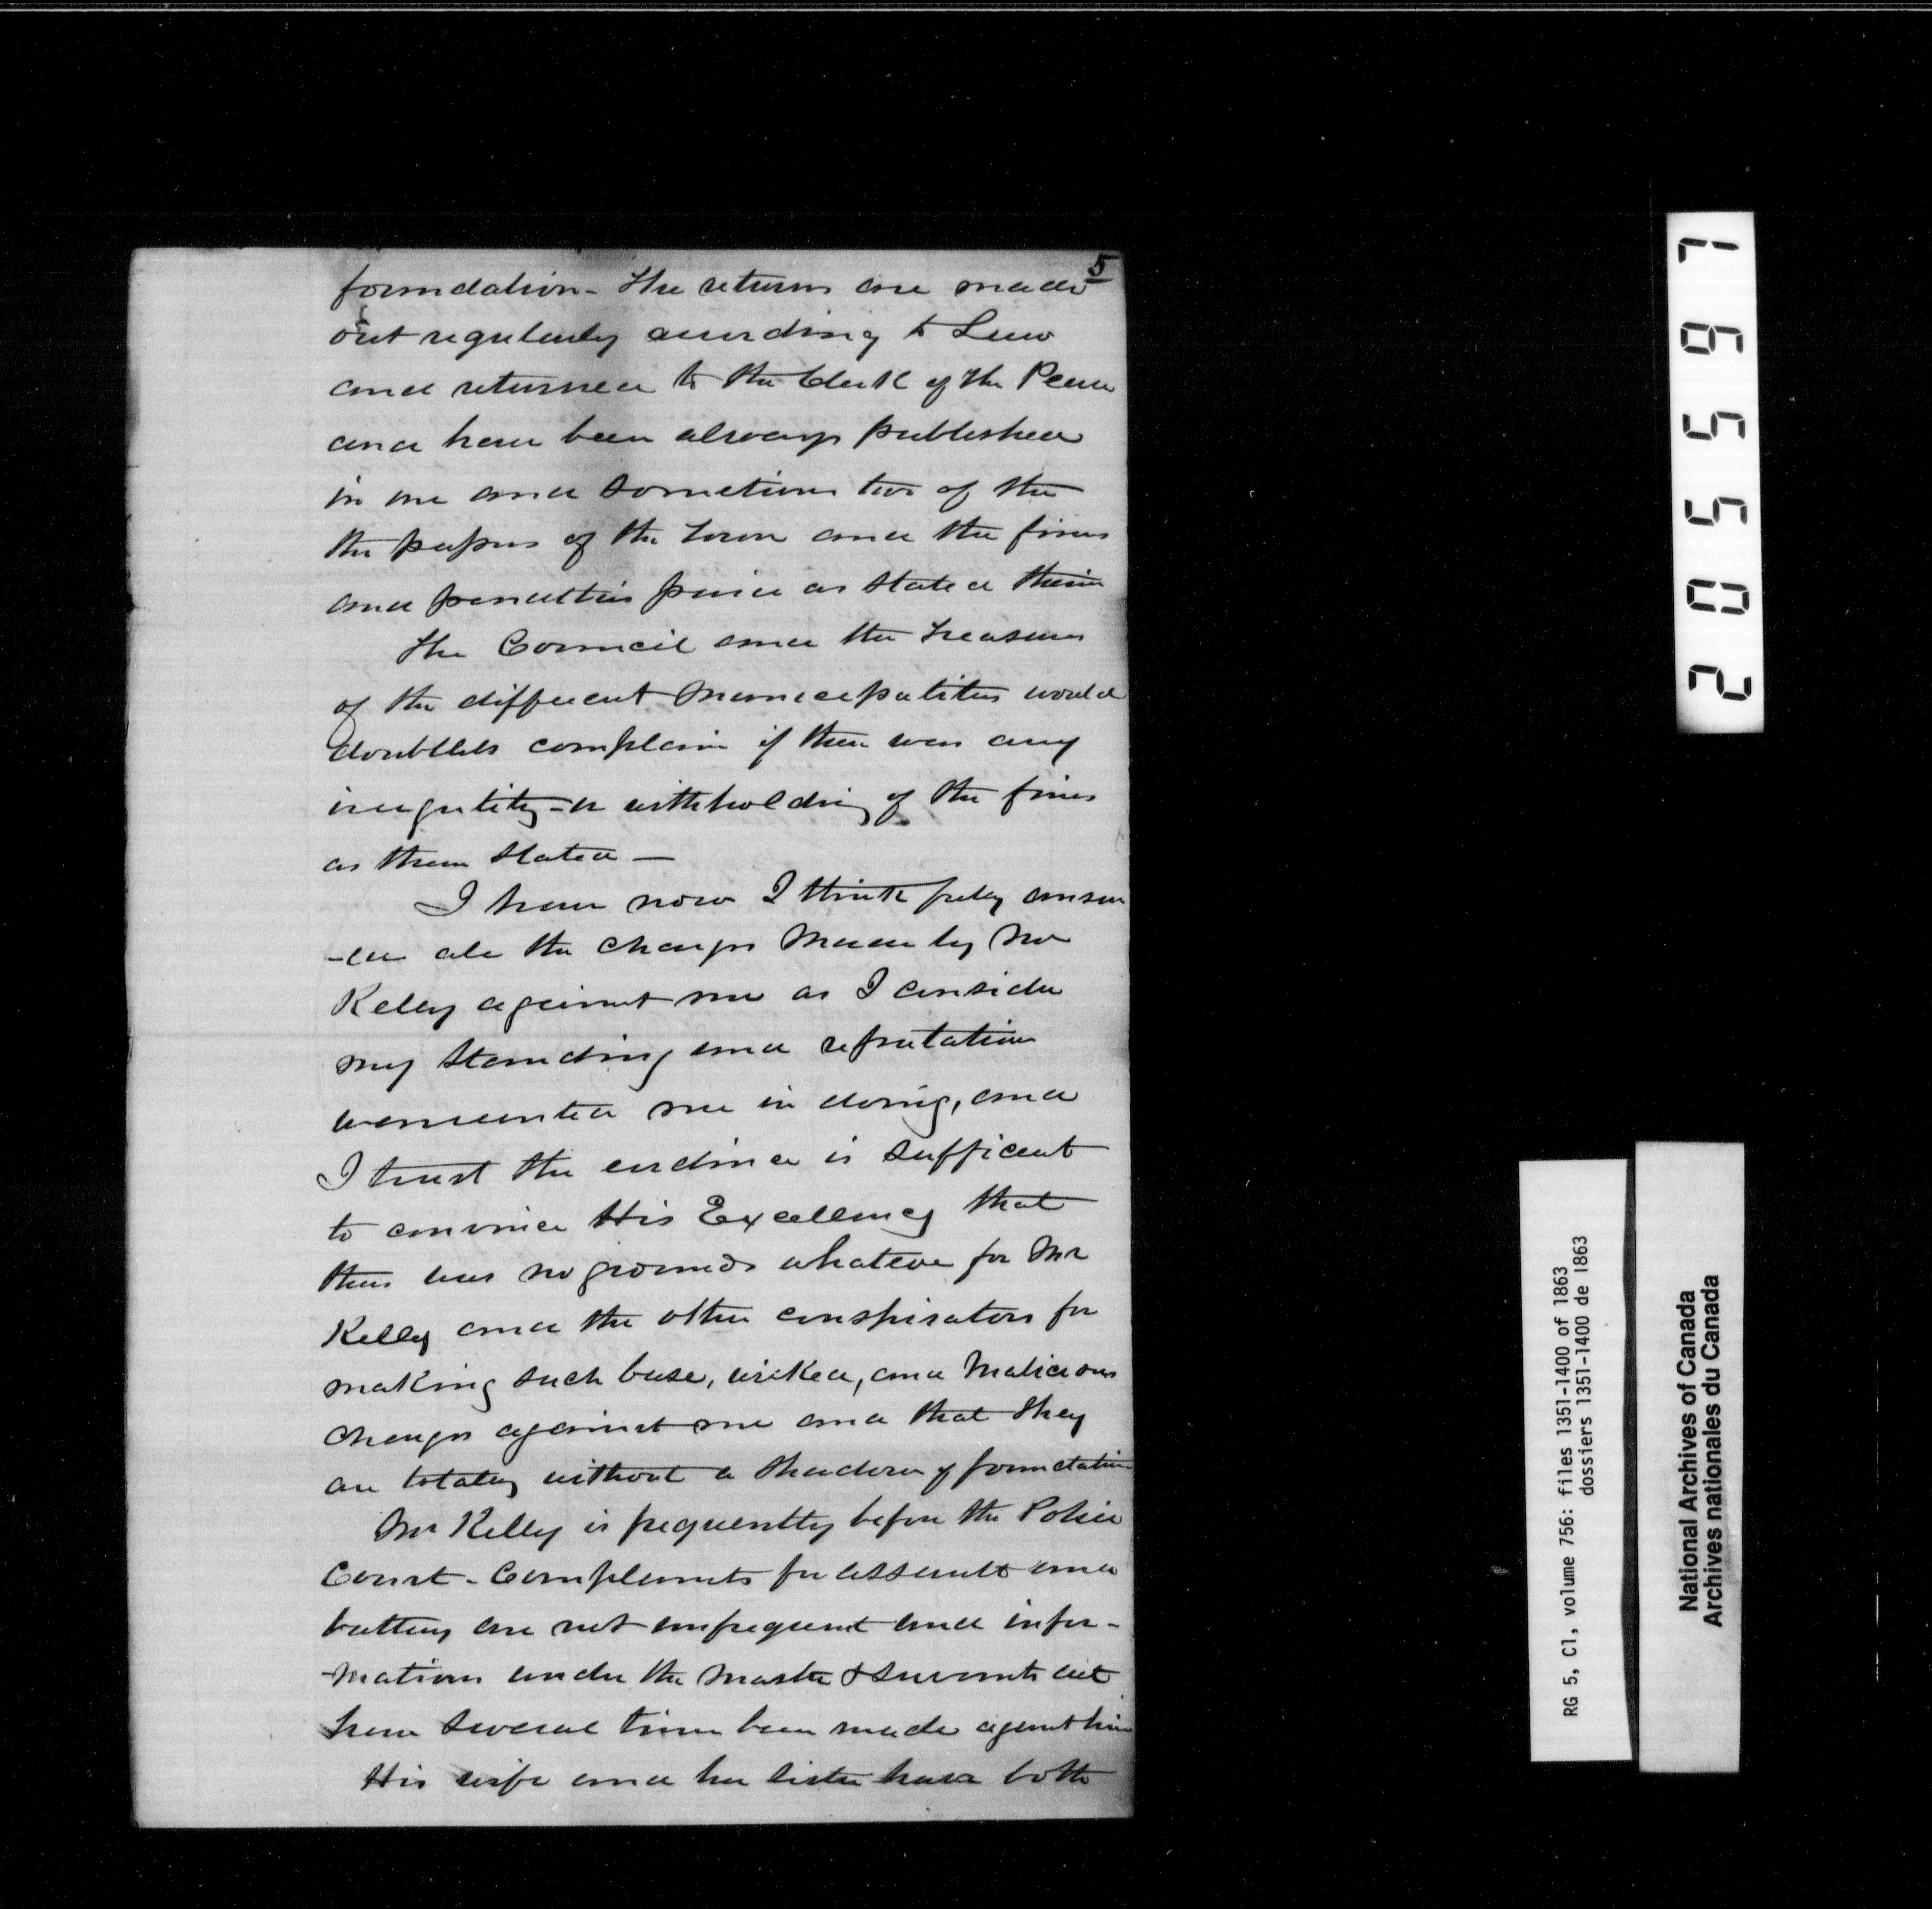 5
foundation - The returns are made
out regularly according to Law
and returned to the Clerk of the Peace
and have been always published
in one and sometimes two of the
the papers of the Town and the fines
and penalties paid as stated therein
The Council and the Treasurer
of the different Municipalities would
doubtless complain if there was any
irregularity or withholding of the fines
as therein stated —
I have now I think fully answer
-ed all the charges made by Mr
Kelly against me as I consider
my standing and reputation
warranted me in doing, and
I trust the evidence is sufficient
to convince His Excellency that
there was no grounds whatever for Mr
Kelly and the other conspirators for
making such base, wicked, and Malicious
charges against me and that they
are totally without a shadow of foundation
Mr Kelly is frequently before the Police
Court - Complaints for assault and
battery are not unfrequent and infor-
-mations under the Master & Servants act
have several times been made against him
His wife and her sister have both
2 0 5 5 6 7
RG 5, C1, volume 756: files 1351-1400 of 1863
dossiers 1351-1400 de 1863
National Archives of Canada
Archives nationales du Canada